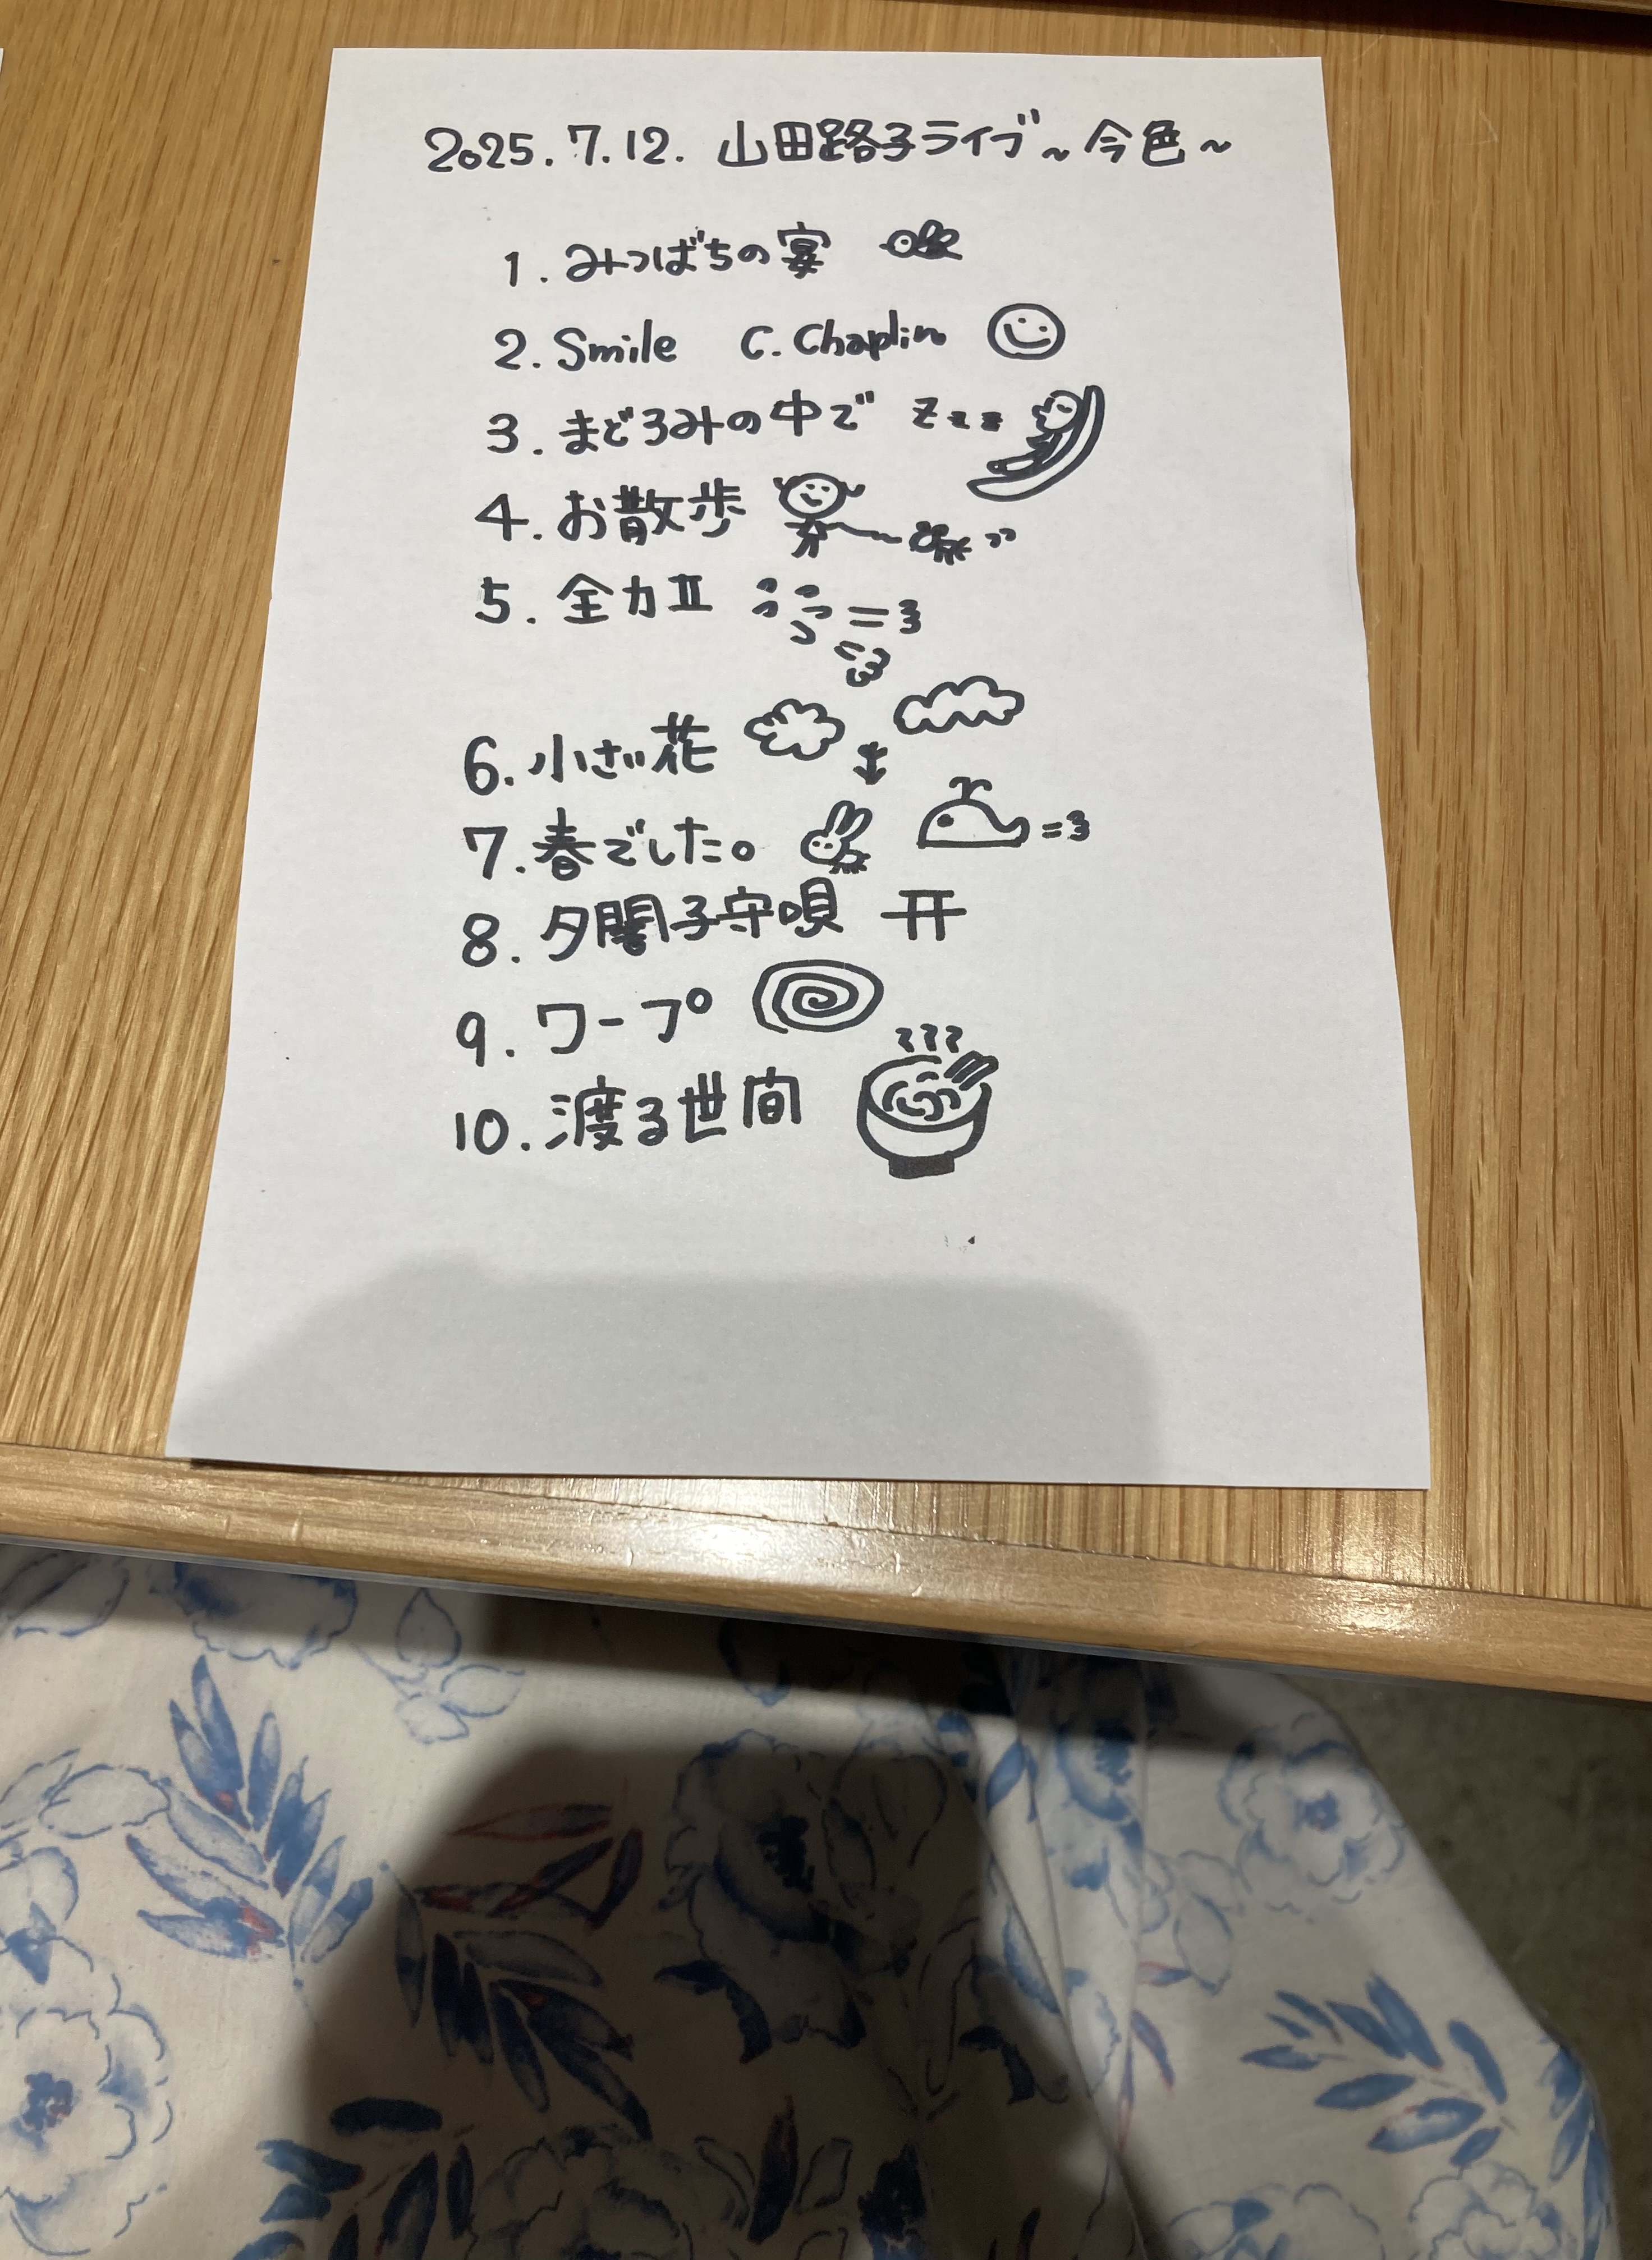 2025.7.12. 山田路子ライブ ~今色~
1. みつばちの宴
2. Smile C. Chaplin
3. まどろみの中で zzz
4. お散歩
5. 全力Ⅱ
6. 小さい花
7. 春でした。
8. 夕闇子守唄
9. ワープ
10. 渡る世間